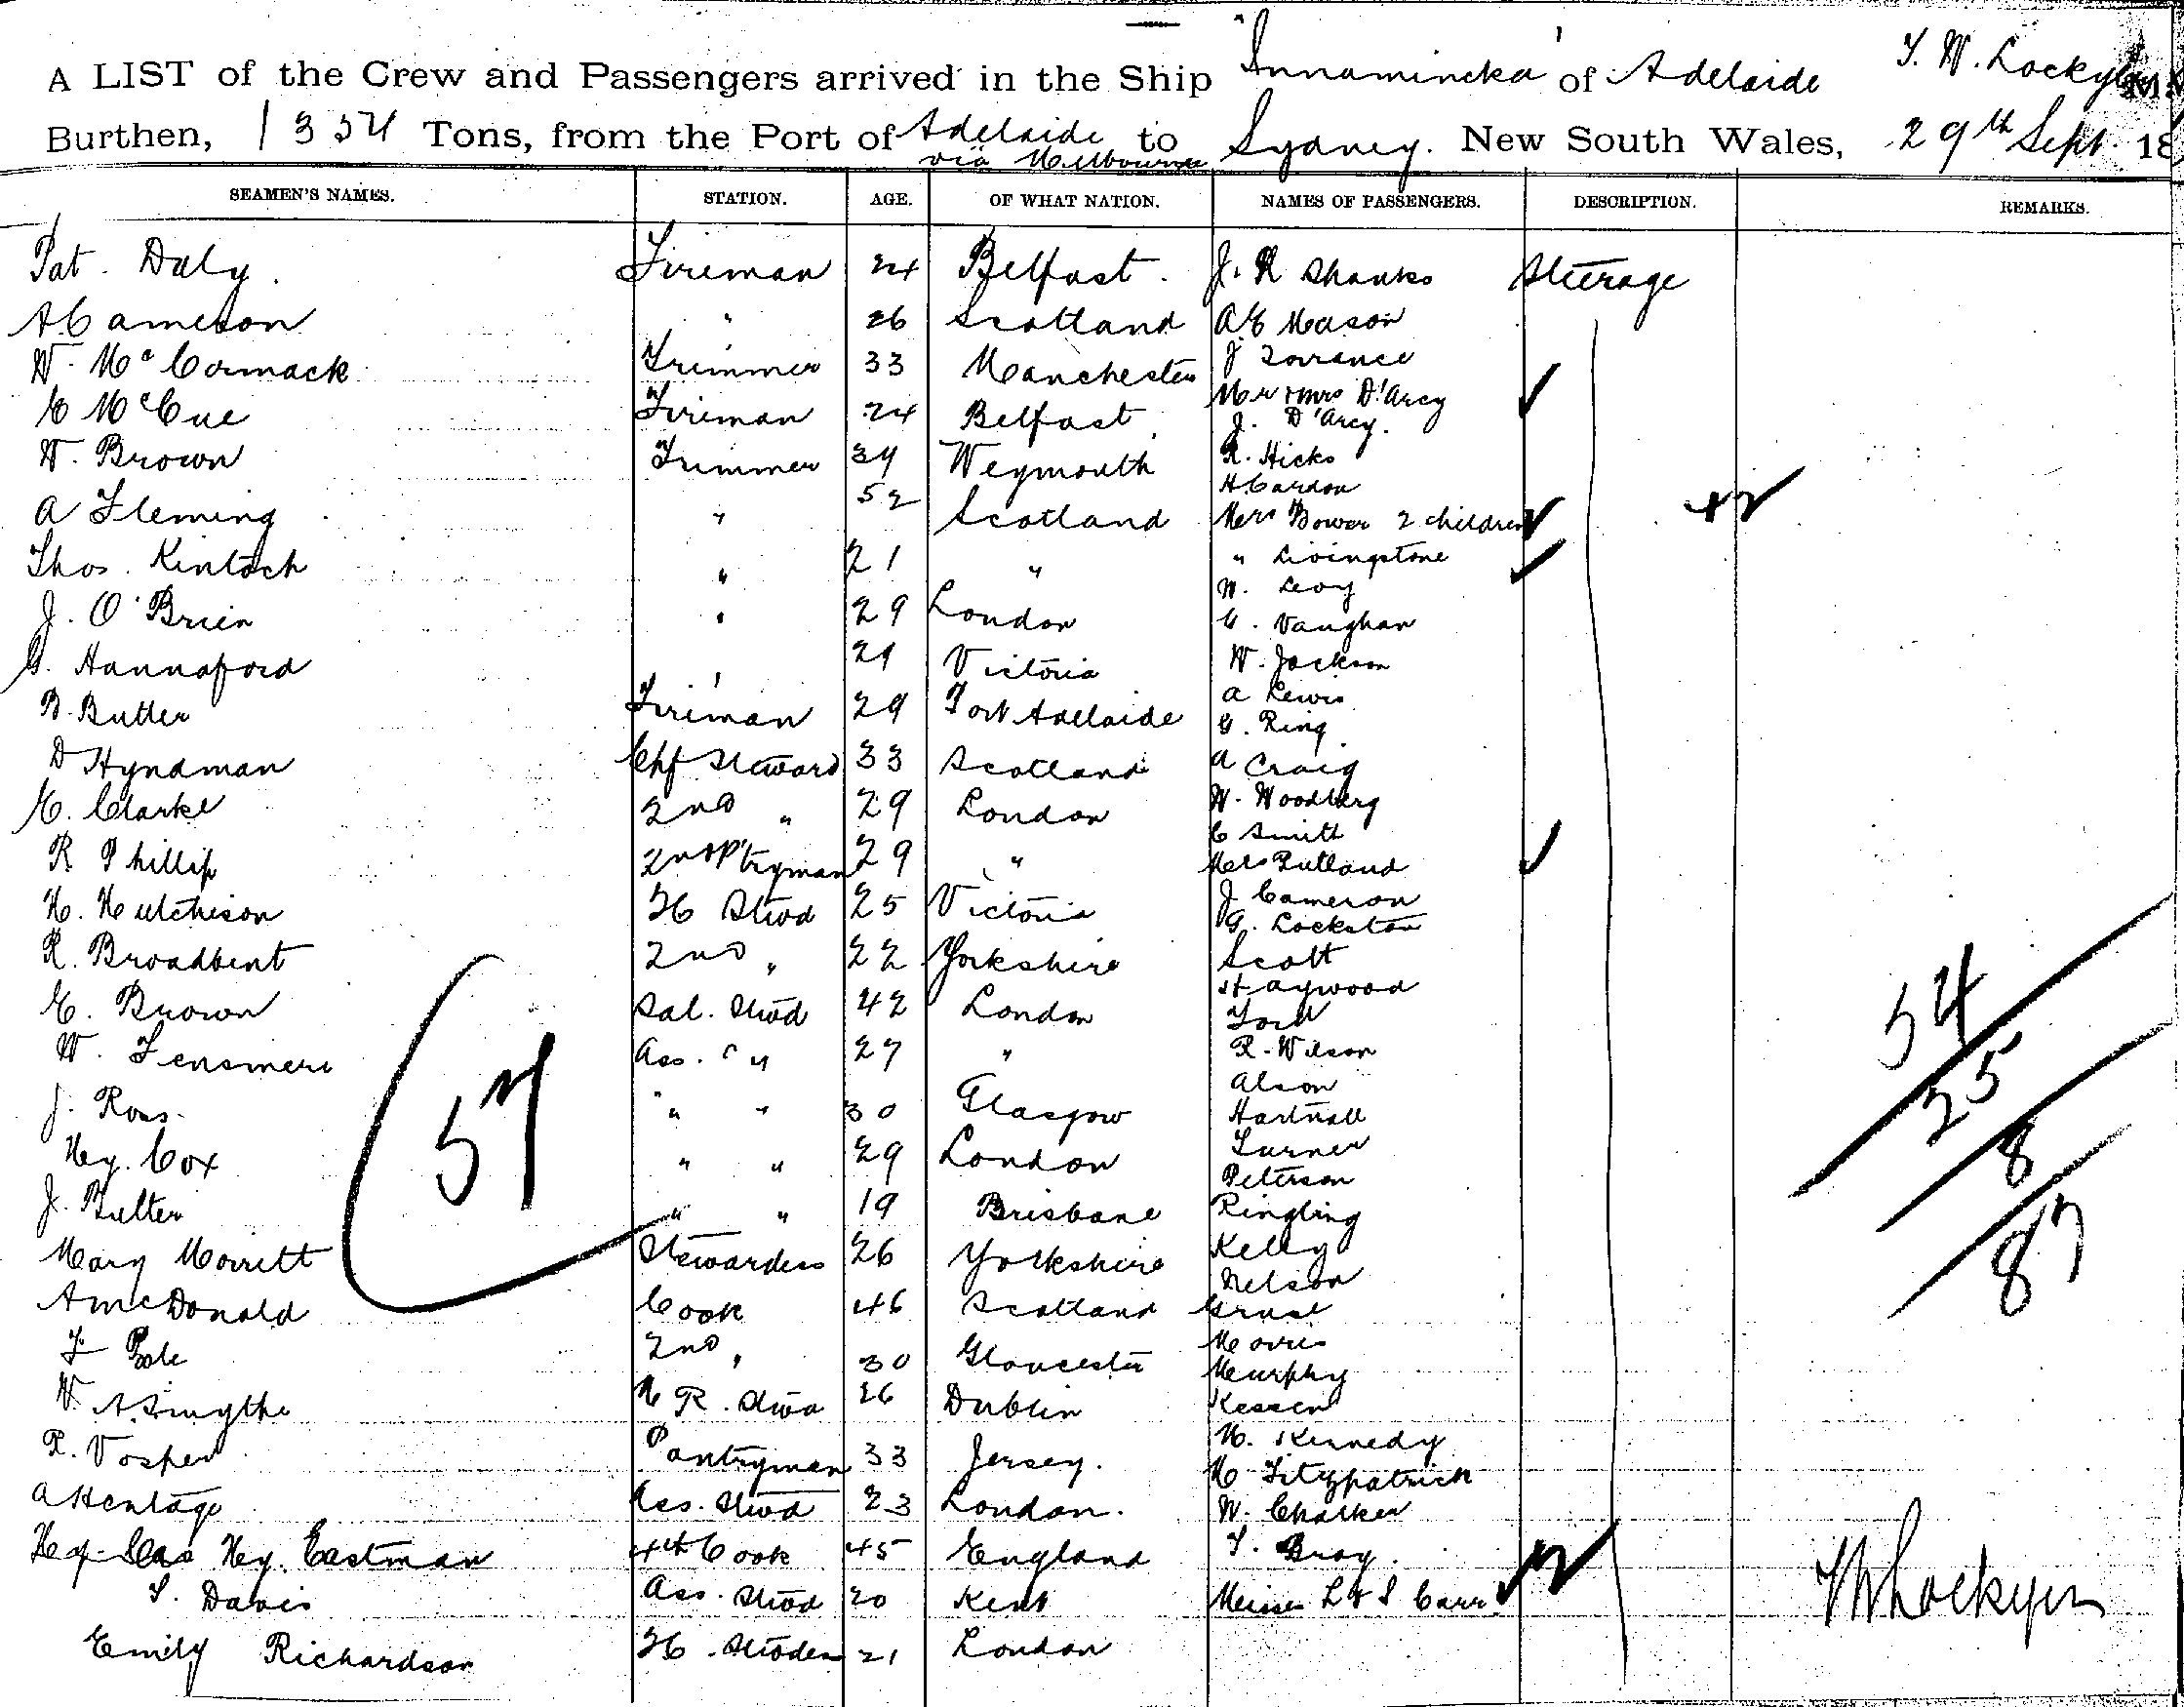 A LIST of the Crew and Passengers arrived in the Ship "Innamincka" of Adelaide T. W. Lockyer
Burthen, 1354 Tons, from the Port of Adelaide via Melbourne to Sydney. New South Wales, 29th Sept. 18
SEAMEN'S NAMES. STATION. AGE. OF WHAT NATION. NAMES OF PASSENGERS. DESCRIPTION. REMARKS.
Pat. Daly. Fireman 24 Belfast. J. R Shanks Steerage
A Cameron " 26 Scotland A E Mason
W. McCormack Trimmer 33 Manchester J Torrance
Mr & Mrs D'Arcy
E McCue Fireman 24 Belfast J. D'Arcy.
W. Brown Trimmer 34 Weymouth R. Hicks
H Cardon
A Fleming " 52 Scotland Mrs Bower 2 children +2
Thos. Kintoch " 21 " " Livingstone
W. Levy
J. O'Brien " 29 London C. Vaughan
G. Hannaford " 21 Victoria W. Jackson
A Lewis
B. Butler Fireman 29 Port Adelaide G. Ring
D Hyndman Chf Steward 33 Scotland A Craig
E. Clarke 2nd " 29 London W. Woodberg
C Smith
R Phillip 2nd P'tryman 29 " Mrs Rutland
H. Hutchison FC Stwd 25 Victoria J Cameron
G. Lockston
R. Broadbent 2nd " 22 Yorkshire Scott
Haywood
E. Brown Sal. Stwd 42 London Ford
W. Fensmere Ass. " 27 " R. Wilson
Alson
J. Ross " " 30 Glasgow Hartnall
Hy. Cox " " 29 London Turner
Peterson
J. Butler " " 19 Brisbane Ringling
Mary Morritt Stewardess 26 Yorkshire Kelly
Nelson
A McDonald Cook 46 Scotland
F Pole 2nd " 30 Gloucester Morris
Murphy
W. A. Smythe R. Stwd 26 Dublin
R. Vosper Pantryman 33 Jersey. M. Kennedy
M Fitzpatrick
A Hentage Ass. Stwd 23 London. W. Chalker
Hy. Eastman 4th Cook 45 England T. Bray.
S. Davis Ass. Stwd 20 Kent Misses L & S Carr 2
Emily Richardson FC. Stwdess 21 London
57
54
25
8
87
TW Lockyer